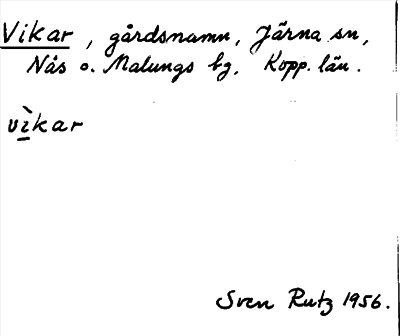 Vikar, gårdsnamn, Järna sn,
Nås o. Malungs bg, Kopp. län.
vìkar
Sven Rutz 1956.